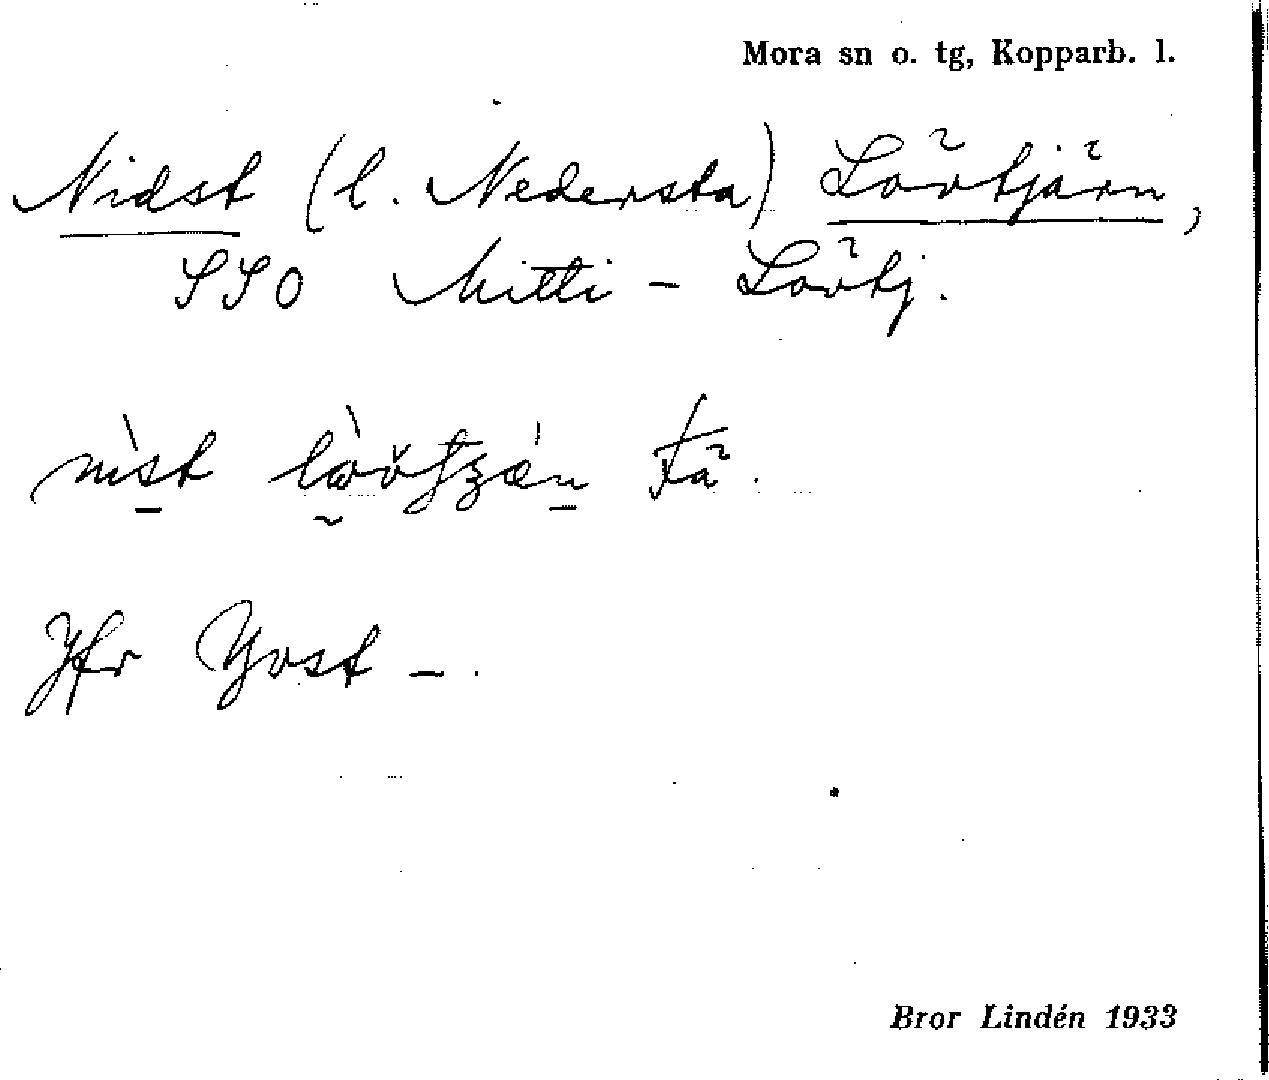 Mora sn o. tg, Kopparb. l.
Nidst (l. Nedersta) Lövtjärn,
SSO Mitti - Lövtj.
Jfr Yvst -.
Bror Lindén 1933